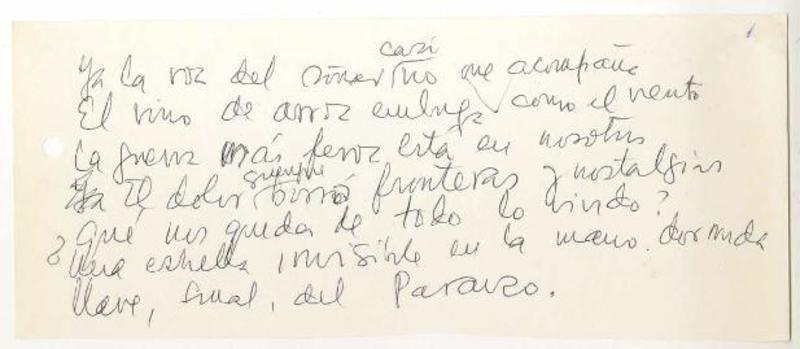 1
Ya la voz del soñar casi no me acompaña
El vino de arroz embriaga como el viento
La guerra más feroz está en nosotros
Ya El dolor siempre borró fronteras y nostalgias
¿Qué nos queda de todo lo vivido?
Una estrella invisible en la mano dormida
llave, final, del Paraíso.